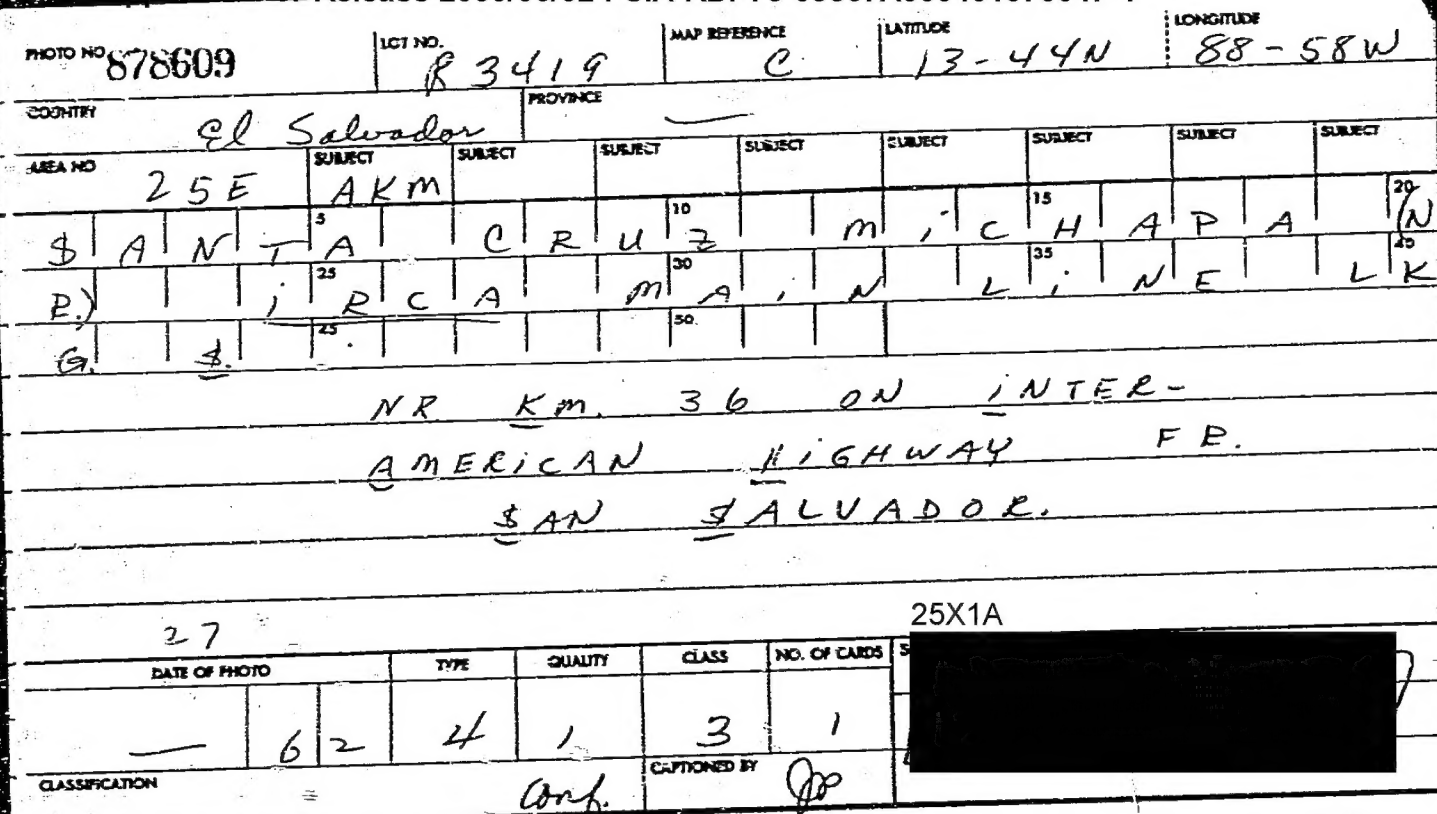 PHOTO NO 878609 LOT NO. R 3419 MAP REFERENCE C LATITUDE 13-44N LONGITUDE 88-58W
COUNTRY El Salvador PROVINCE —
AREA NO 25E SUBJECT AKM SUBJECT SUBJECT SUBJECT SUBJECT SUBJECT SUBJECT SUBJECT
5 10 15 20
$ANTA CRUZ MiCHAPA (N
25 30 35
E.) iRCA MAiN LiNE LK
G. $. 50
NR KM. 36 ON iNTER-
AMERiCAN HiGHWAY FR.
$AN $ALVADOR.
27 25X1A
DATE OF PHOTO TYPE QUALITY CLASS NO. OF CARDS S
— 62 4 1 3 1
CLASSIFICATION Conf. CAPTIONED BY